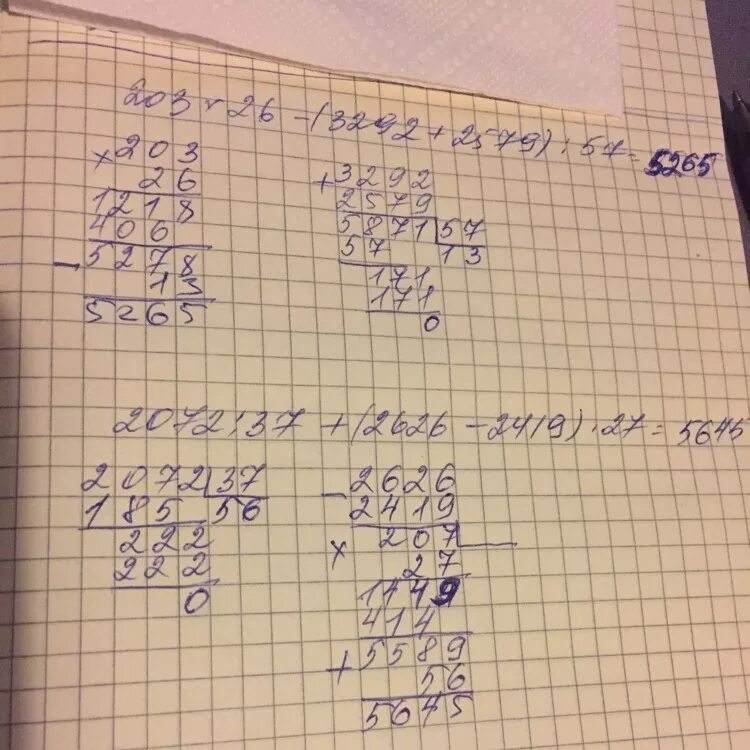 203 × 26 - (3292 + 2579) : 57 = 5265
× 203
26
1218
406
- 5278
13
5265
+ 3292
2579
5871 57
57 13
171
171
0
2072 : 37 + (2626 - 2419) · 27 = 5645
2072 37
185 56
222
222
0
- 2626
2419
× 207
27
1449
414
+ 5589
56
5645